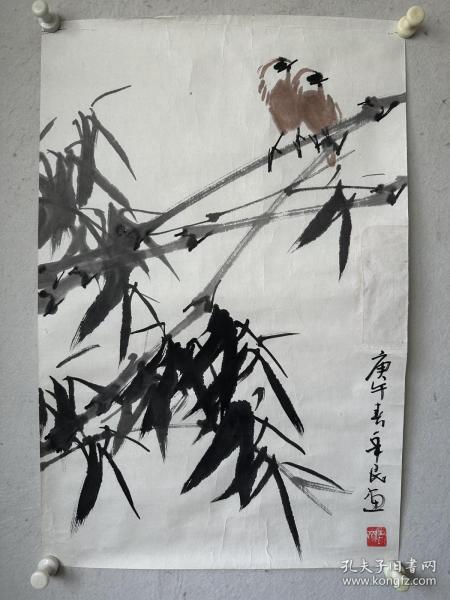 庚午春年民画
孔夫子旧书网
www.kongfz.com